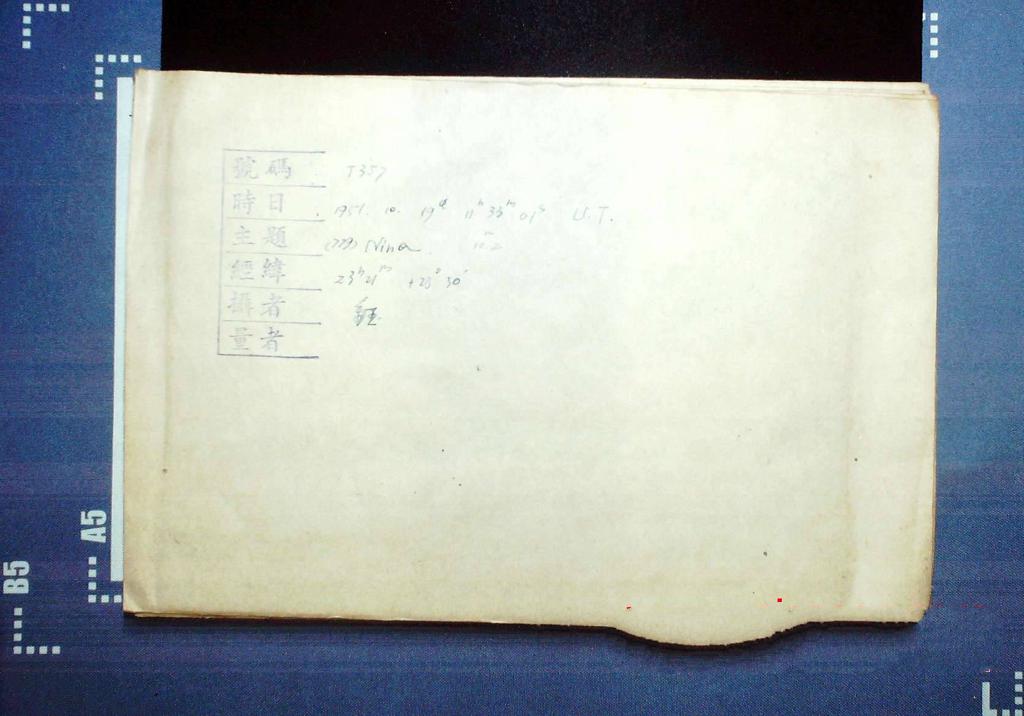 號碼 T357
時日 1951. 10. 19ᵈ 11ʰ 33ᵐ 01ˢ U.T.
主題 (779) Nina 10.2ᵐ
經緯 23ʰ 21ᵐ +23° 30′
攝者
量者
A5
B5
L